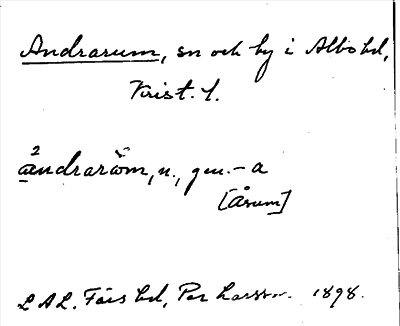 Andrarum, sn och by i Albo hd,
Krist. l.
2
åndraröm, n., gen. -a
[Årum]
LAL. Färs hd, Per Larsson. 1898.